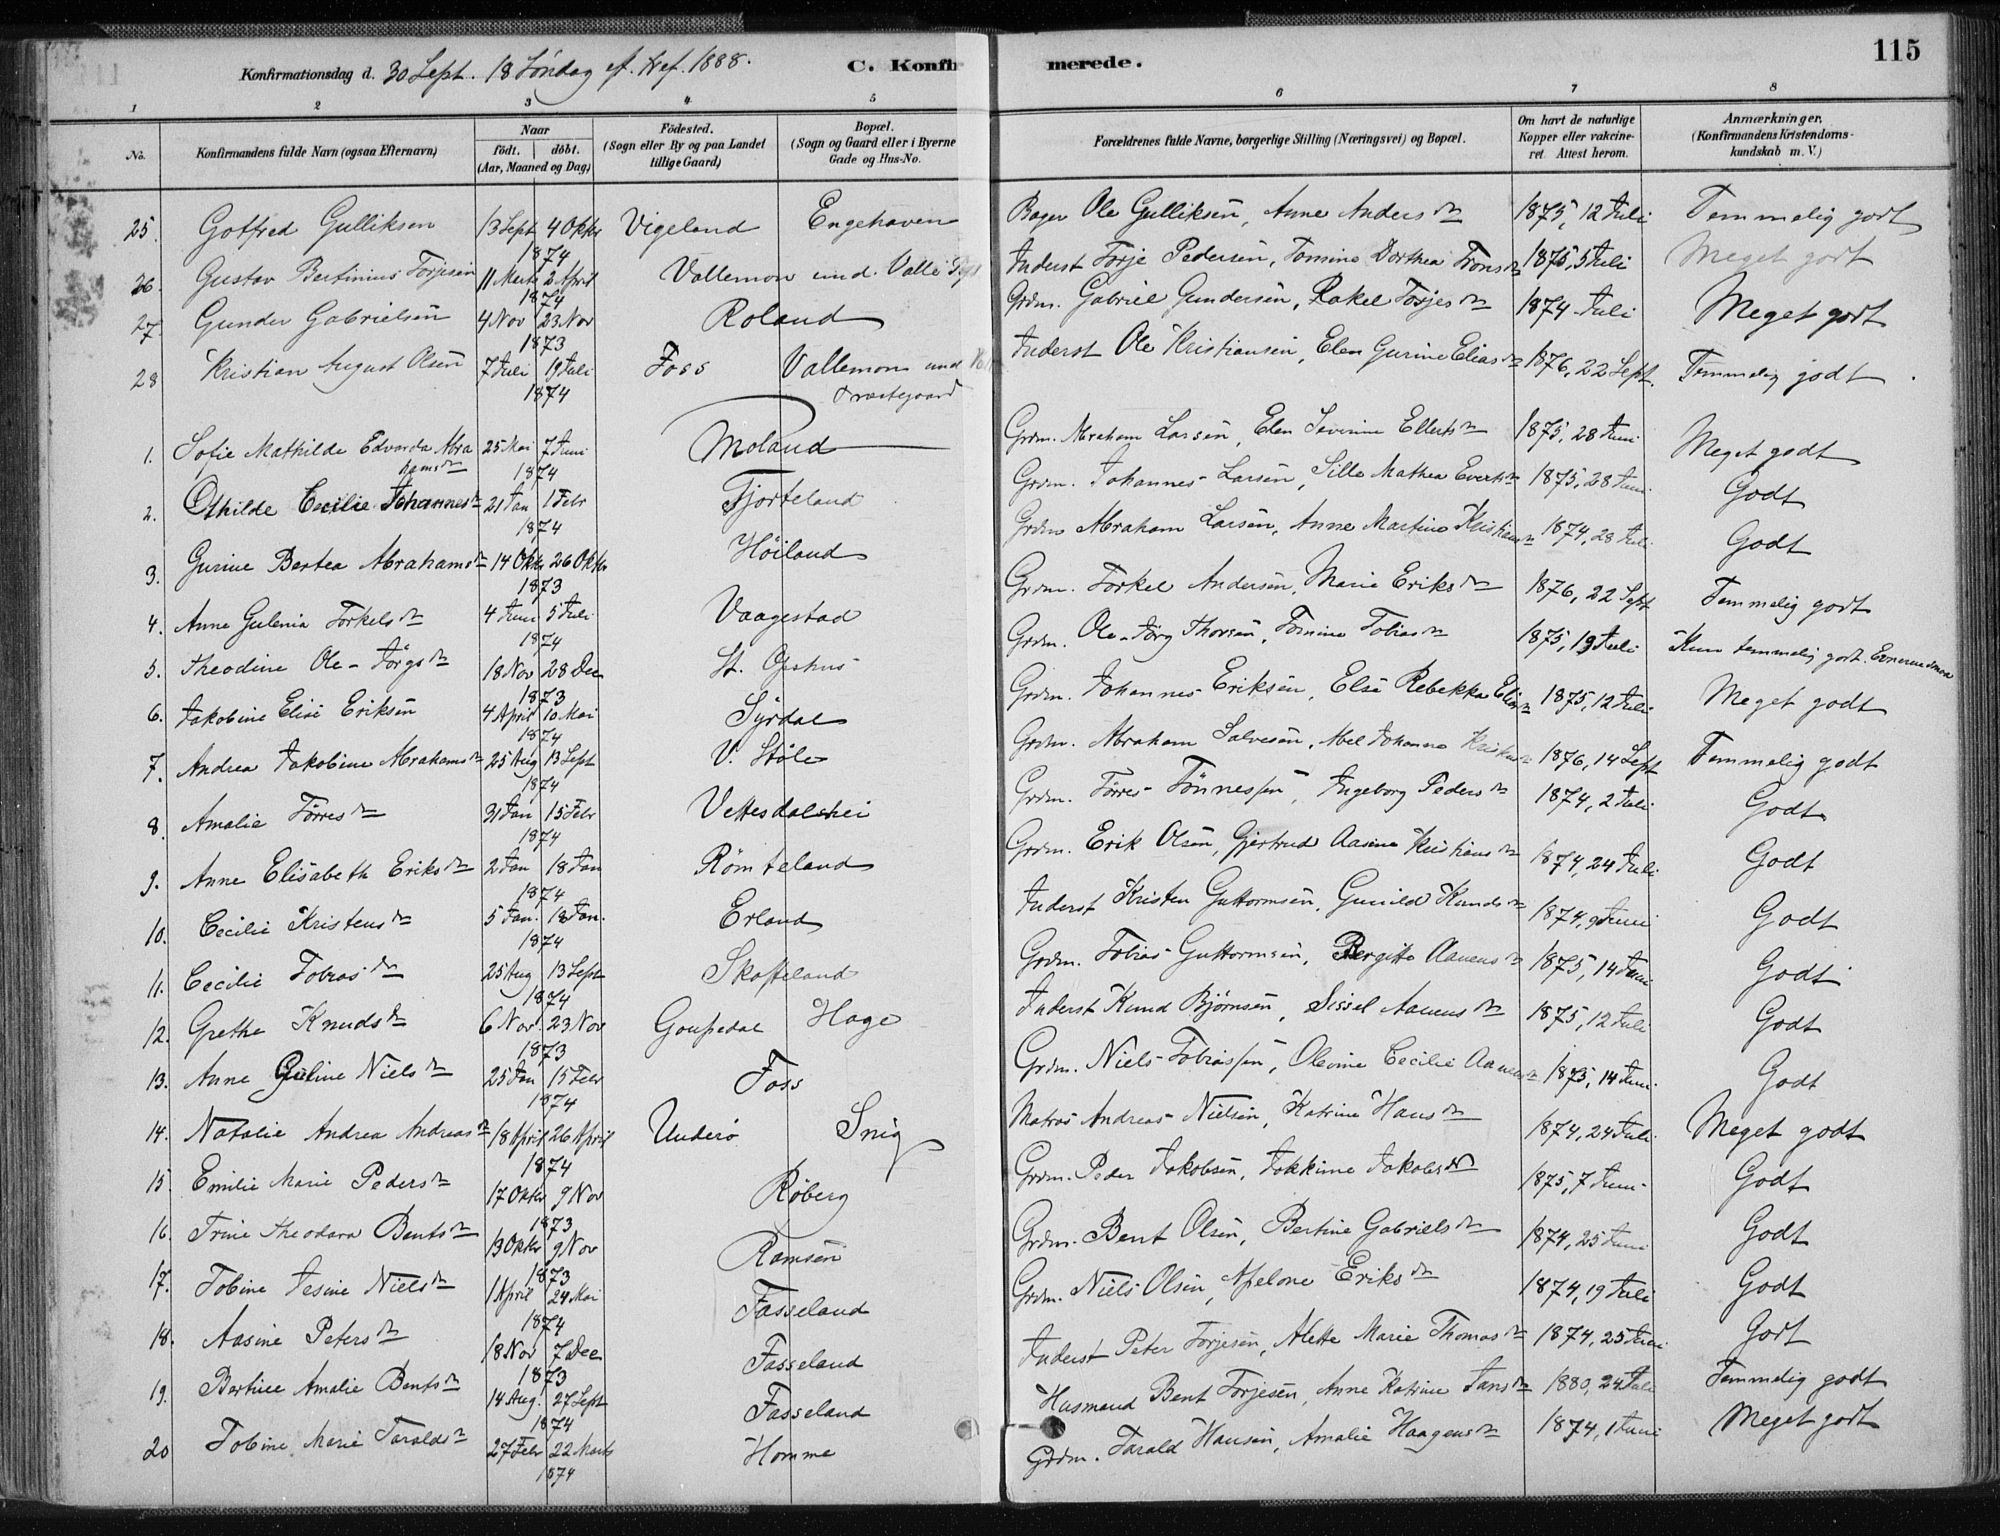 115
Konfirmationsdag d. 30 Sept. 18 Söndag ef. Tref. 1888.
C. Konfir merede.
1 2 3 4 5 6 7 8
No.
Konfirmandens fulde Navn (ogsaa Efternavn)
Naar
födt. döbt.
(Aar, Maaned og Dag)
Födested.
(Sogn eller By og paa Landet
tillige Gaard)
Bopæl.
(Sogn og Gaard eller i Byerne
Gade og Hus-No.
Forældrenes fulde Navne, borgerlige Stilling (Næringsvei) og Bopæl.
Om havt de naturlige
Kopper eller vakcine-
ret. Attest herom.
Anmærkninger.
(Konfirmandens Kristendoms-
kundskab m. V.)
25. Gotfred Gulliksen 13 Sept 4 Oktr 1874 Vigeland Engehaven Bager Ole Gulliksen, Anne Andersdn 1875, 12 Juli Temmelig godt
26. Gustav Bertinius Torjesen 11 Marts 2 April 1874 Vallemon und. Valle Inderst Torje Pedersen, Tomine Dorthea Tronsdn 1875, 5 Juli Meget godt
27. Gunder Gabrielsen 4 Nov 23 Nov 1873 Roland Grdm. Gabriel Gundersen, Rakel Torjesdn 1874 Juli Meget godt
28 Kristian August Olsen 7 Juli 19 Juli 1874 Foss Vallemon und Præstegaard Inderst Ole Kristiansen, Elen Gurine Eliasdn 1876, 22 Sept. Temmelig godt.
1. Sofie Mathilde Edvarda Abra
hamsdn 25 Mai 7 Juni 1874 Moland Grdm. Abraham Larsen, Elen Severine Ellertsdn 1875, 28 Juni Meget godt
2. Othilde Cecilie Johannesdn 21 Jan 1 Febr 1874 Fjorteland Grdm. Johannes Larsen, Sille Mathea Evertsdn 1875, 28 Juni Godt
3. Gurine Bertea Abrahamsdn 14 Oktr 26 Oktr 1873 Höiland Grdm Abraham Larsen, Anne Martine Kristiansdn 1874, 28 Juli Godt
4. Anne Gulenia Torkelsdn 4 Juni 5 Juli 1874 Vaagestad Grdm. Torkel Andersen, Marie Eriksdn 1876, 22 Sept Temmelig godt
5. Theodine Ole-Jörgsdn 18 Nov 28 Dec 1873 St. Opshus Grdm. Ole-Jörg Thorsen, Tomine Tobiasdn 1875, 13 Juli Kun temmelig godt.
6. Jakobine Elise Eriksen 4 April 10 Mai 1874 Syrdal Grdm. Johannes Eriksen, Else Rebekka Eliasdn 1875, 12 Juli Meget godt
7. Andrea Jakobine Abrahamsdn 25 Aug 13 Sept 1874 V. Støle Grdm. Abraham Salvesen, Abel Johanne 1876, 14 Sept Temmelig godt
8. Amalie Törresdn 31 Jan 15 Febr 1874 Vettesdalshei Grdm. Törres Tönnessen, Ingeborg Pedersdn 1874, 2 Juli Godt
9. Anne Elisabeth Eriksdn 2 Jan 18 Jan 1874 Römteland Grdm. Erik Olsen, Gjertrud Aasine Kristiansdn 1874, 24 Juli Godt
10. Cecilie Kristensdn 5 Jan. 18 Jan. 1874 Erland Inderst Kristen Guttormsen, Gunild Knudsdn 1874, 9 Juni Godt
11. Cecilie Tobiasdn 25 Aug 13 Sept 1874 Skofteland Grdm. Tobias Guttormsen, Bergitte Aanensdn 1875, 14 Juni Godt
12. Grethe Knudsdn 6 Nov. 23 Nov 1873 Goupedal Hage Inderst Knud Bjørnsen, Sissel Aanensdn 1875, 12 Juli Godt
13. Anne Guline Nielsdn 25 Jan 15 Febr 1874 Foss Grdm. Niels Tobiassen, Olevine Cecilie Aanensdn 1875, 14 Juni Godt
14. Natalie Andrea Andreasdn 18 April 26 April 1874 Underø Snig Matros Andreas Nielsen, Katrine Hansdn 1874, 24 Juli Meget godt
15. Emilie Marie Pedersdn 17 Oktr 9 Nov 1873 Röberg Grdm. Peder Jakobsen, Jokkime Jakobsdn 1875, 7 Juni Godt
16. Trine Theodora Bentsdn 13 Oktr 9 Nov 1873 Ramsen Grdm. Bent Olsen, Bertine Gabrielsdn 1874, 25 Juni Godt
17. Tobine Jesine Nielsdn 1 April 24 Mai 1874 Fasseland Grdm. Niels Olsen, Apelone Eriksdn 1874, 19 Juli Godt
18. Aasine Petersdn 18 Nov 7 Dec 1873 Fasseland Inderst Peter Torjesen, Alette Marie Thomasdn 1874, 25 Juni Godt
19. Bertine Amalie Bentsdn 14 Aug. 27 Sept 1874 Fasseland Husmand Bent Torjesen, Anne Katrine Jansdn 1880, 24 Juli Temmelig godt
20 Tobine Marie Taraldsdn 27 Febr 22 Marts 1874 Homme Grdm. Tarald Hansen, Amalie Haagensdn 1874, 1 Juni Meget godt